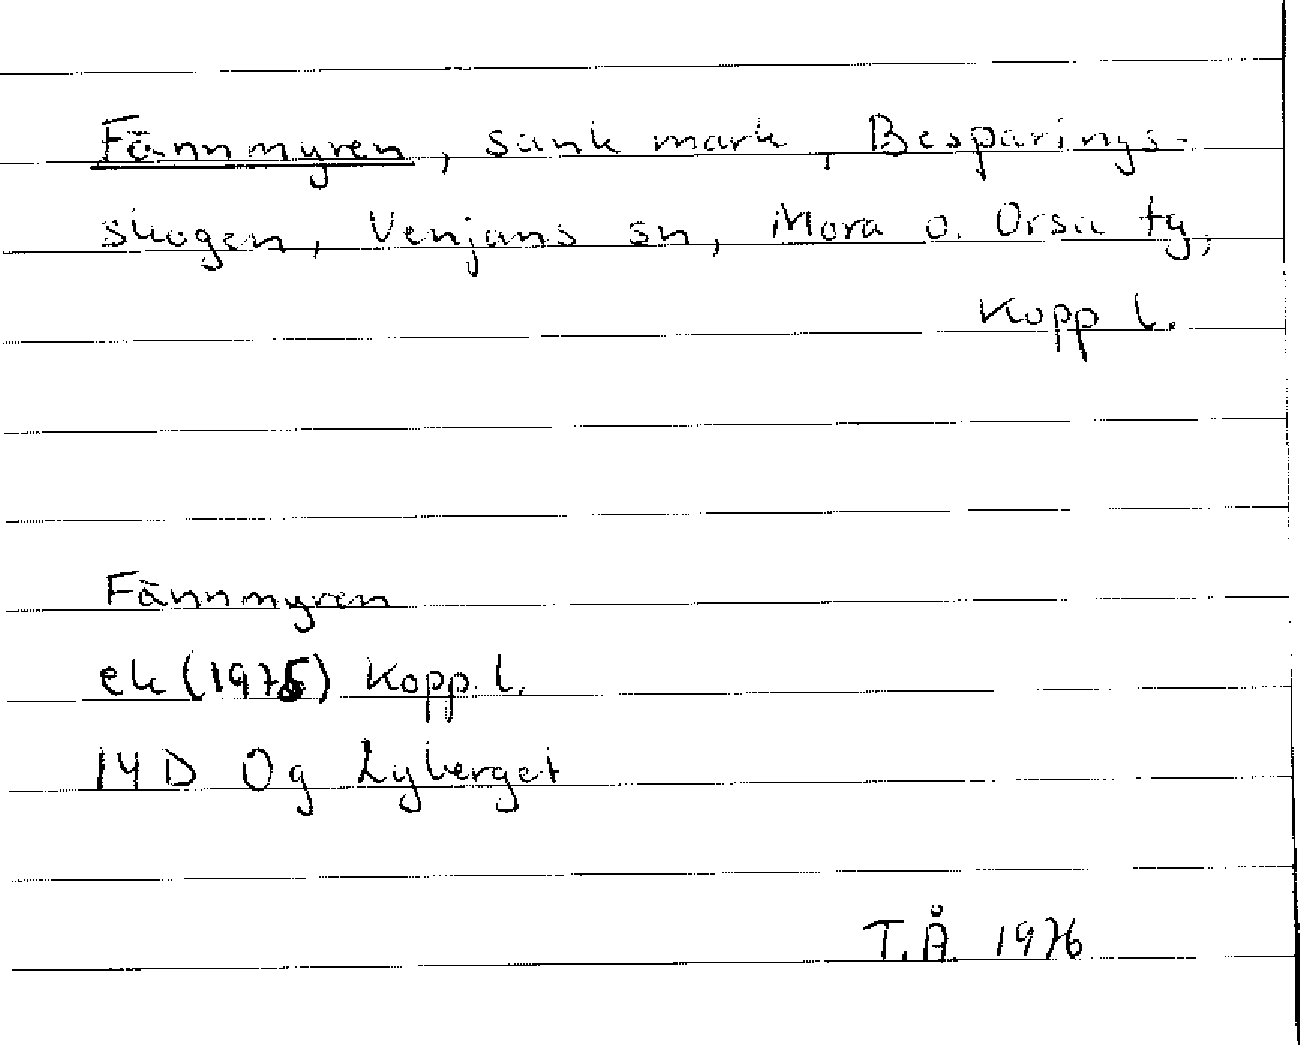 Fännmyren, sank mark, Besparings-
skogen, Venjans sn, Mora o. Orsa tg,
Kopp l.
Fännmyren
ek (1975) Kopp. l.
14 D 0g Lyberget
T.Å. 1976